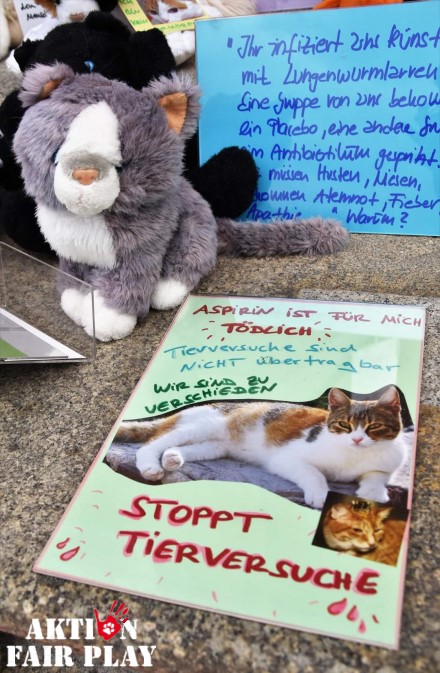 "Ihr infiziert uns künst
mit Lungenwurmlarven
Eine Gruppe von uns beko
ein Placebo, eine andere
ein Antibiotikum gespritzt.
müssen Husten, Niesen,
kommen Atemnot, Fieber
Apathie " Warum?
ASPIRIN IST FÜR MICH
TÖDLICH
TIERVERSUCHE SIND
NICHT übertragbar
WIR SIND ZU
VERSCHIEDEN
STOPPT
TIERVERSUCHE
AKTION
FAIR PLAY